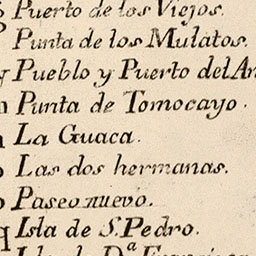 Puerto de los Viejos.
Punta de los Mulatos.
y Pueblo y Puerto del
Punta de Tomocayo.
La Guaca.
Las dos hermanas.
Paseo nuevo.
q Isla de S. Pedro.